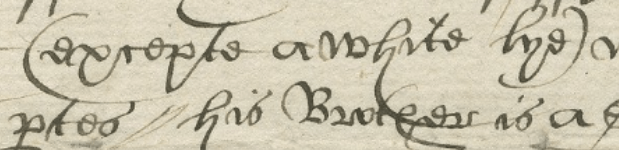 (excepte a white lye)
ptes // his Brother is a